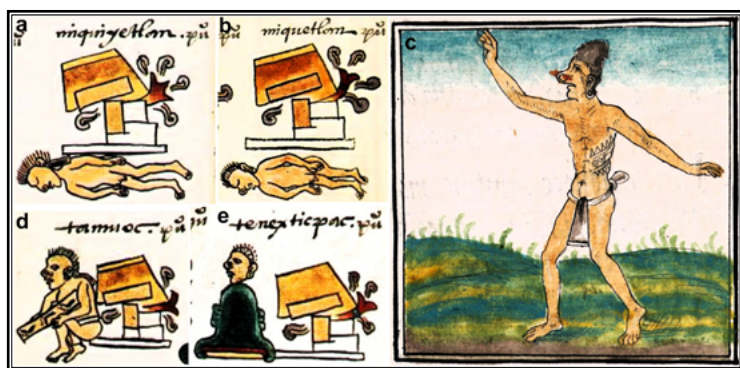 a miquiyetlan. pũ
b pũ miquetlan. pũ
c
d tamuoc. pũ
e tenexticpac. pũ